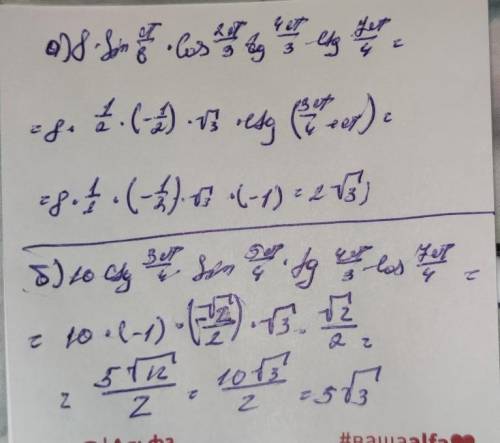 а) 8 · sin π/6 · cos 2π/3 tg 4π/3 · ctg 7π/4 =
= 8 · 1/2 · (-1/2) · √3 · ctg (3π/4 + π) =
= 8 · 1/2 · (-1/2) · √3 · (-1) = 2√3)
б) 10 ctg 3π/4 · sin 5π/4 · tg 4π/3 · cos 7π/4 =
= 10 · (-1) · (-√2/2) · √3 · √2/2 =
= 5√12/2 = 10√3/2 = 5√3
#вашаalfa